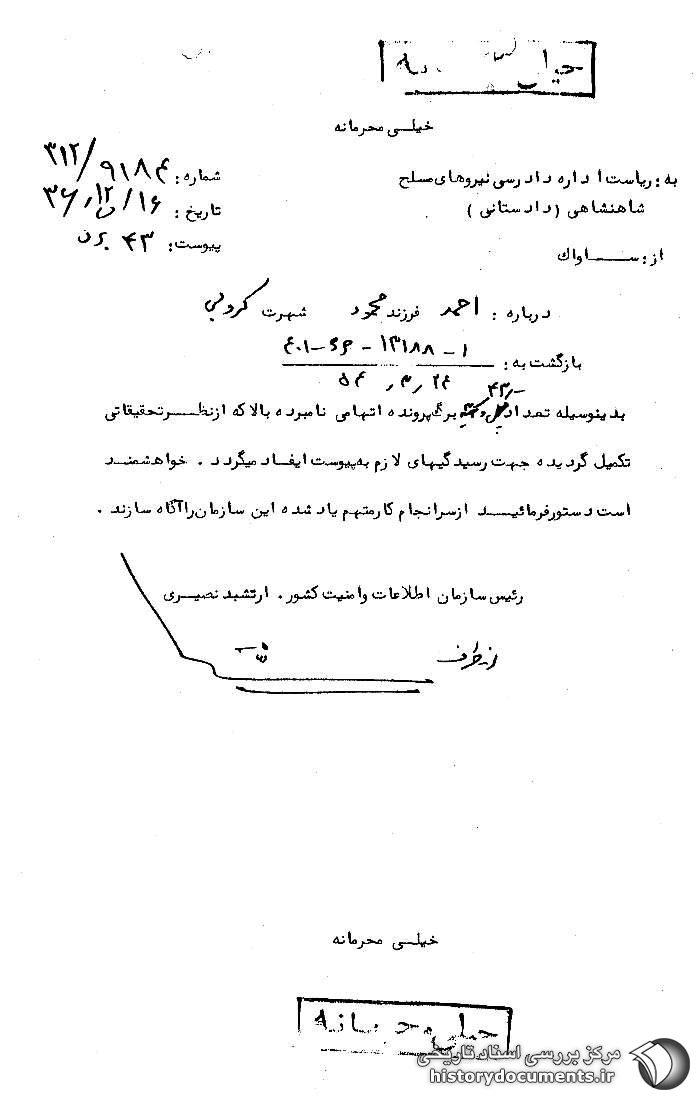 خیلی محرمانه
به: ریاست اداره دادرسی نیروهای مسلح
شاهنشاهی (دادستانی)
از: ســــاواک
شماره: ۳۱۲/۹۱۸۴
تاریخ: ۳۶/۱۲/۱۶
پیوست: ۴۳ برگ
درباره: احمد فرزند محمود شهرت کروبی
بازگشت به: ۱-۱۳۱۸۸
بدینوسیله تعداد ۴۳ برگ پرونده اتهامی نامبرده بالا که از نظـر تحقیقاتی
تکمیل گردیده جهت رسیدگیهای لازم به پیوست ایفاد میگردد. خواهشمنـد
است دستور فرمائیـــد از سرانجام کار متهم یاد شده این سازمان را آگاه سازند.
رئیس سازمان اطلاعات و امنیت کشور. ارتشبد نصیـری
از طرف
خیلی محرمانه
خیلی محرمانه
مرکز بررسی اسناد تاریخی
historydocuments.ir